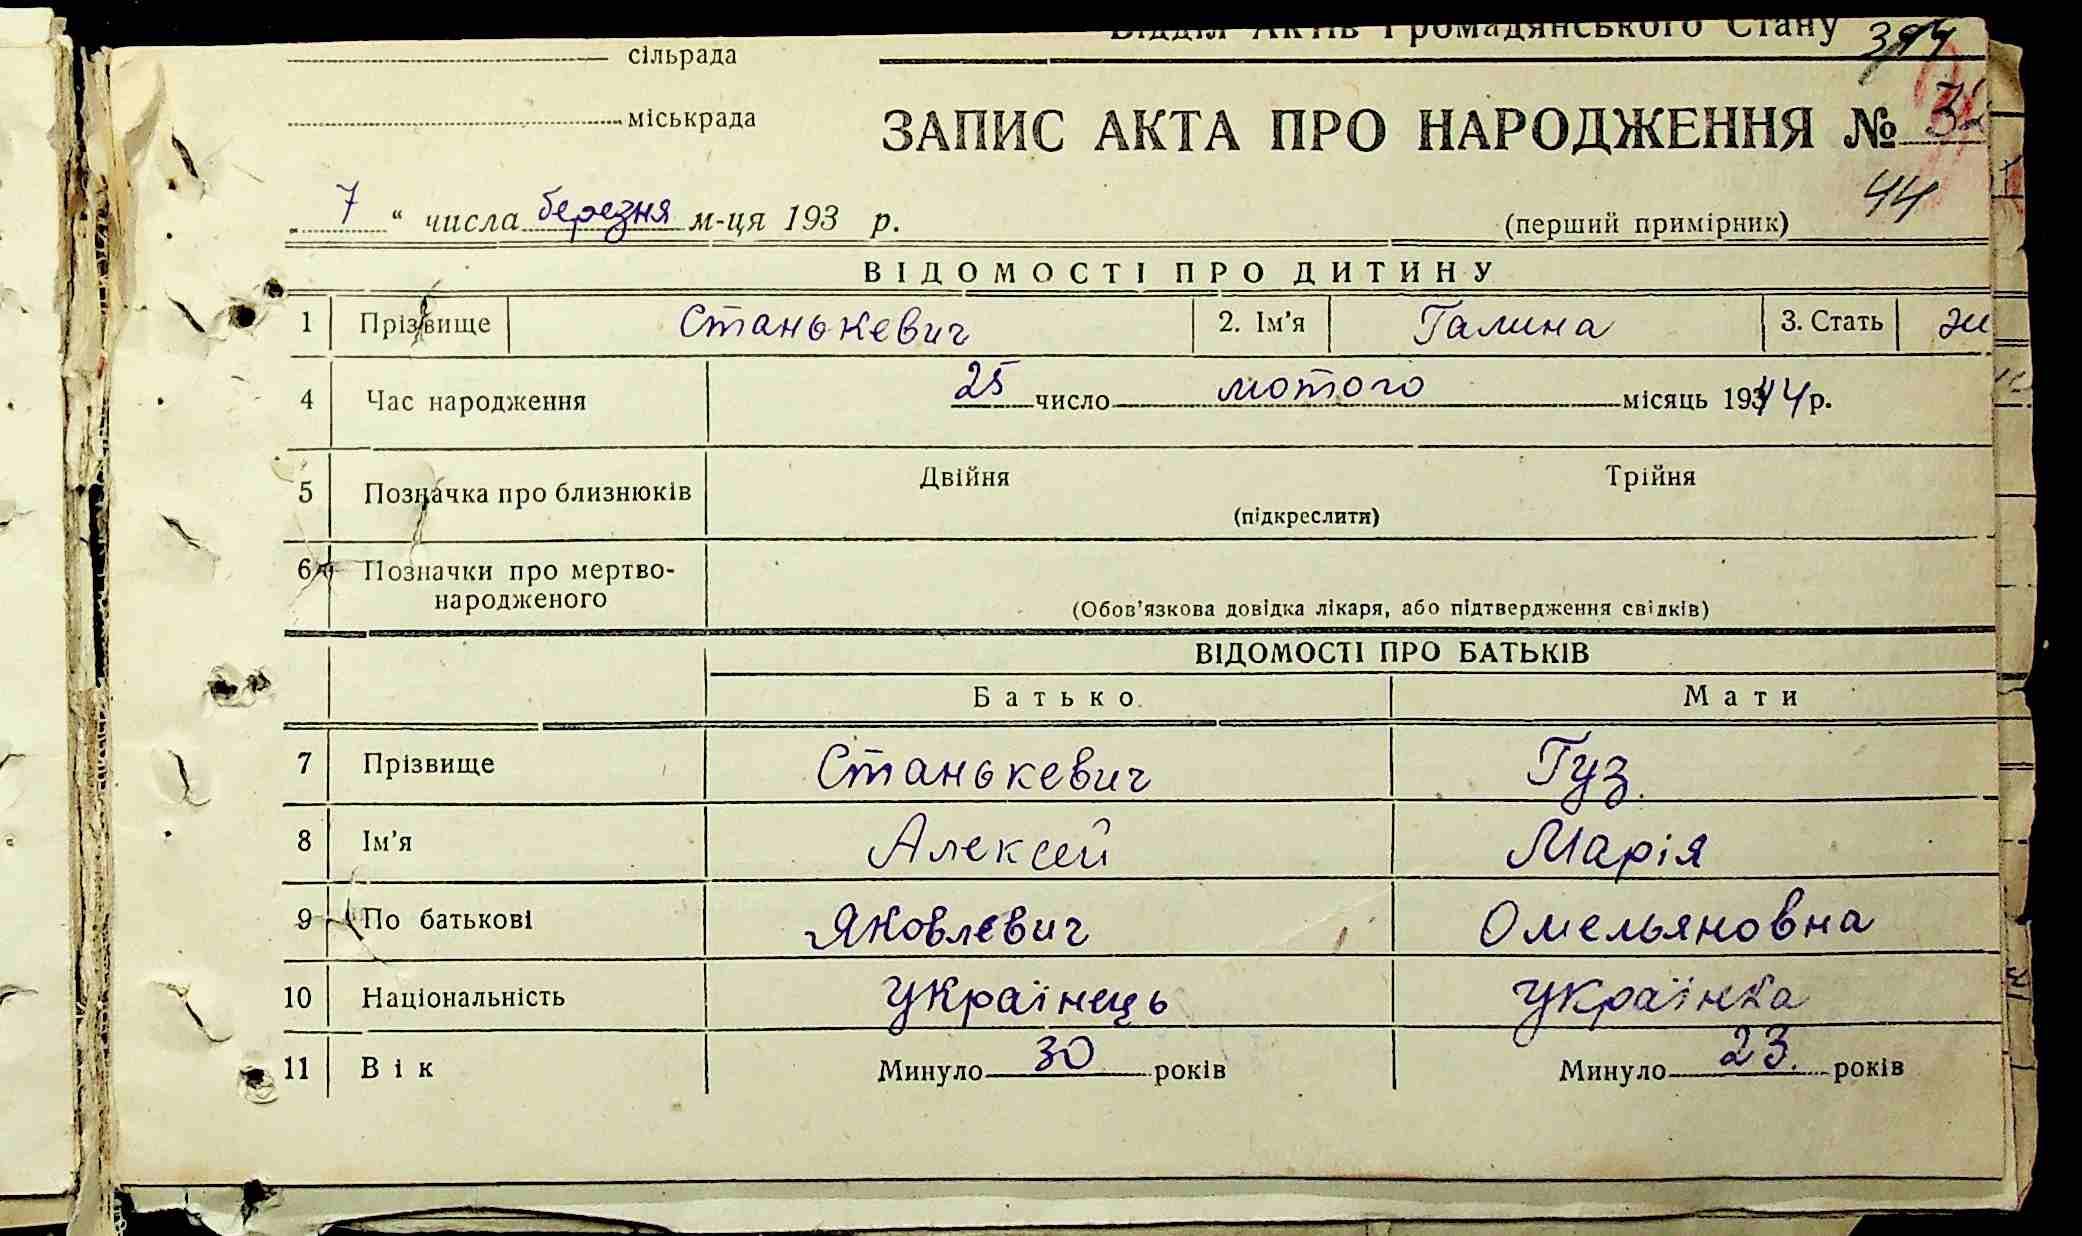 Відділ Актів Громадянського Стану
сільрада
міськрада
ЗАПИС АКТА ПРО НАРОДЖЕННЯ №
44
„ 7 “ числа березня м-ця 193 р.
(перший примірник)
ВІДОМОСТІ ПРО ДИТИНУ
1 Прізвище Станькевич 2. Ім’я Галина 3. Стать ж
4 Час народження 25 число лютого місяць 1944 р.
5 Позначка про близнюків Двійня Трійня
(підкреслити)
6 Позначки про мертво-
народженого
(Обов’язкова довідка лікаря, або підтвердження свідків)
ВІДОМОСТІ ПРО БАТЬКІВ
Батько Мати
7 Прізвище Станькевич Гуз
8 Ім’я Алексей Марія
9 По батькові Яковлевич Омельяновна
10 Національність Українець Українка
11 Вік Минуло 30 років Минуло 23 років